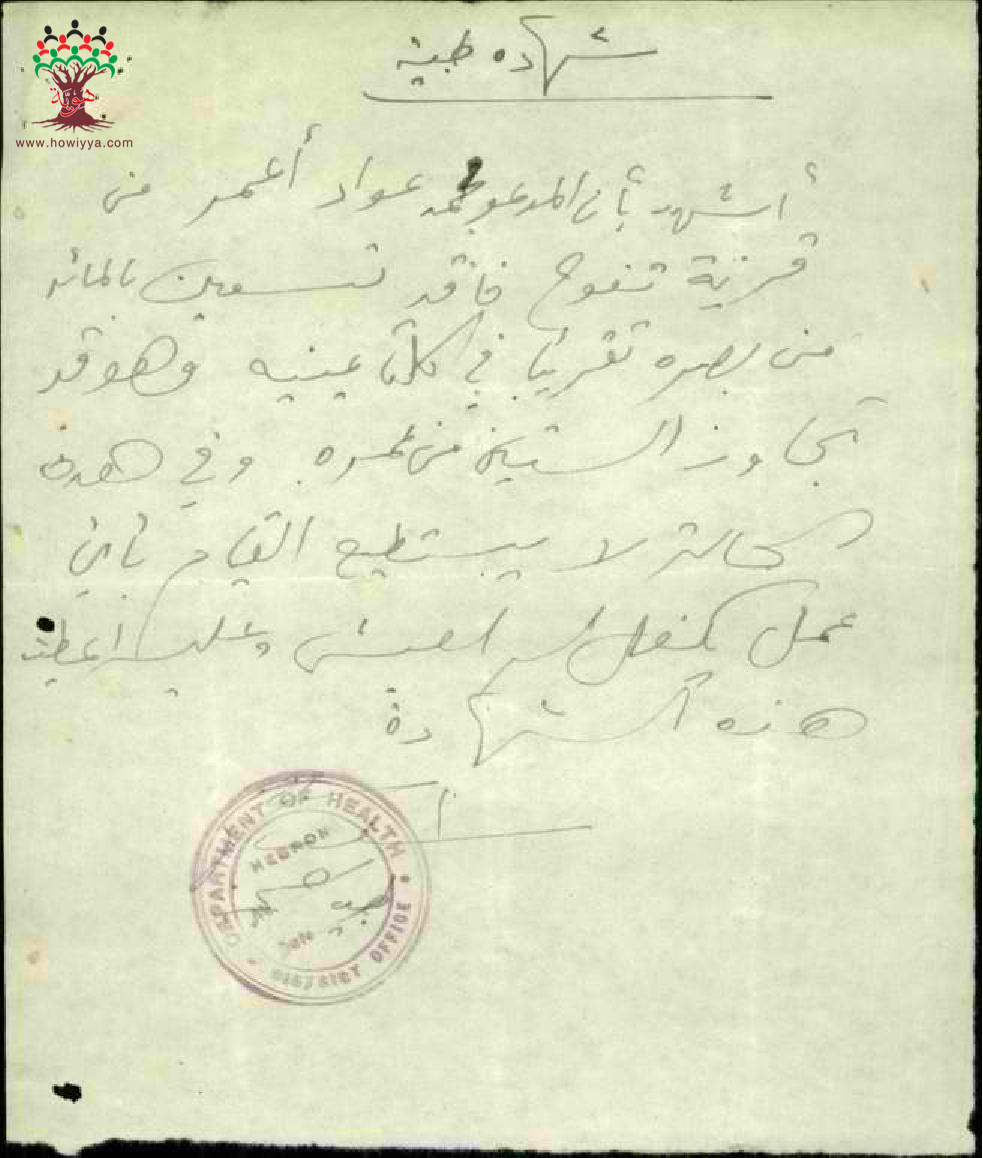 هوية
www.howiyya.com
شهاده طبية
أشهد بأن المدعو محمد عواد أعمر من
قرية تفوح فاقد تسعين بالمائه
من بصره تقريبا في كلتا عينيه وهو قد
تجاوز الستين من عمره وفي هذه
الحالة لا يستطيع القيام بأي
عمل العيش وعليه اعطيت
هذه الشهادة
DEPARTMENT OF HEALTH
HEBRON
DISTRICT OFFICE